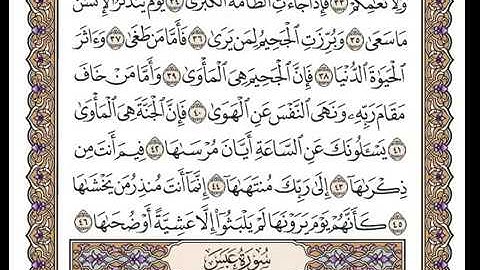 وَلِأَنْعَٰمِكُمْ ٣٣ فَإِذَا جَآءَتِ ٱلطَّآمَّةُ ٱلْكُبْرَىٰ ٣٤ يَوْمَ يَتَذَكَّرُ ٱلْإِنسَٰنُ
مَا سَعَىٰ ٣٥ وَبُرِّزَتِ ٱلْجَحِيمُ لِمَن يَرَىٰ ٣٦ فَأَمَّا مَن طَغَىٰ ٣٧ وَءَاثَرَ
ٱلْحَيَوٰةَ ٱلدُّنْيَا ٣٨ فَإِنَّ ٱلْجَحِيمَ هِىَ ٱلْمَأْوَىٰ ٣٩ وَأَمَّا مَنْ خَافَ
مَقَامَ رَبِّهِۦ وَنَهَى ٱلنَّفْسَ عَنِ ٱلْهَوَىٰ ٤٠ فَإِنَّ ٱلْجَنَّةَ هِىَ ٱلْمَأْوَىٰ
٤١ يَسْـَٔلُونَكَ عَنِ ٱلسَّاعَةِ أَيَّانَ مُرْسَىٰهَا ٤٢ فِيمَ أَنتَ مِن
ذِكْرَىٰهَآ ٤٣ إِلَىٰ رَبِّكَ مُنتَهَىٰهَآ ٤٤ إِنَّمَآ أَنتَ مُنذِرُ مَن يَخْشَىٰهَا
٤٥ كَأَنَّهُمْ يَوْمَ يَرَوْنَهَا لَمْ يَلْبَثُوٓا۟ إِلَّا عَشِيَّةً أَوْ ضُحَىٰهَا ٤٦
سُورَةُ عَبَسَ